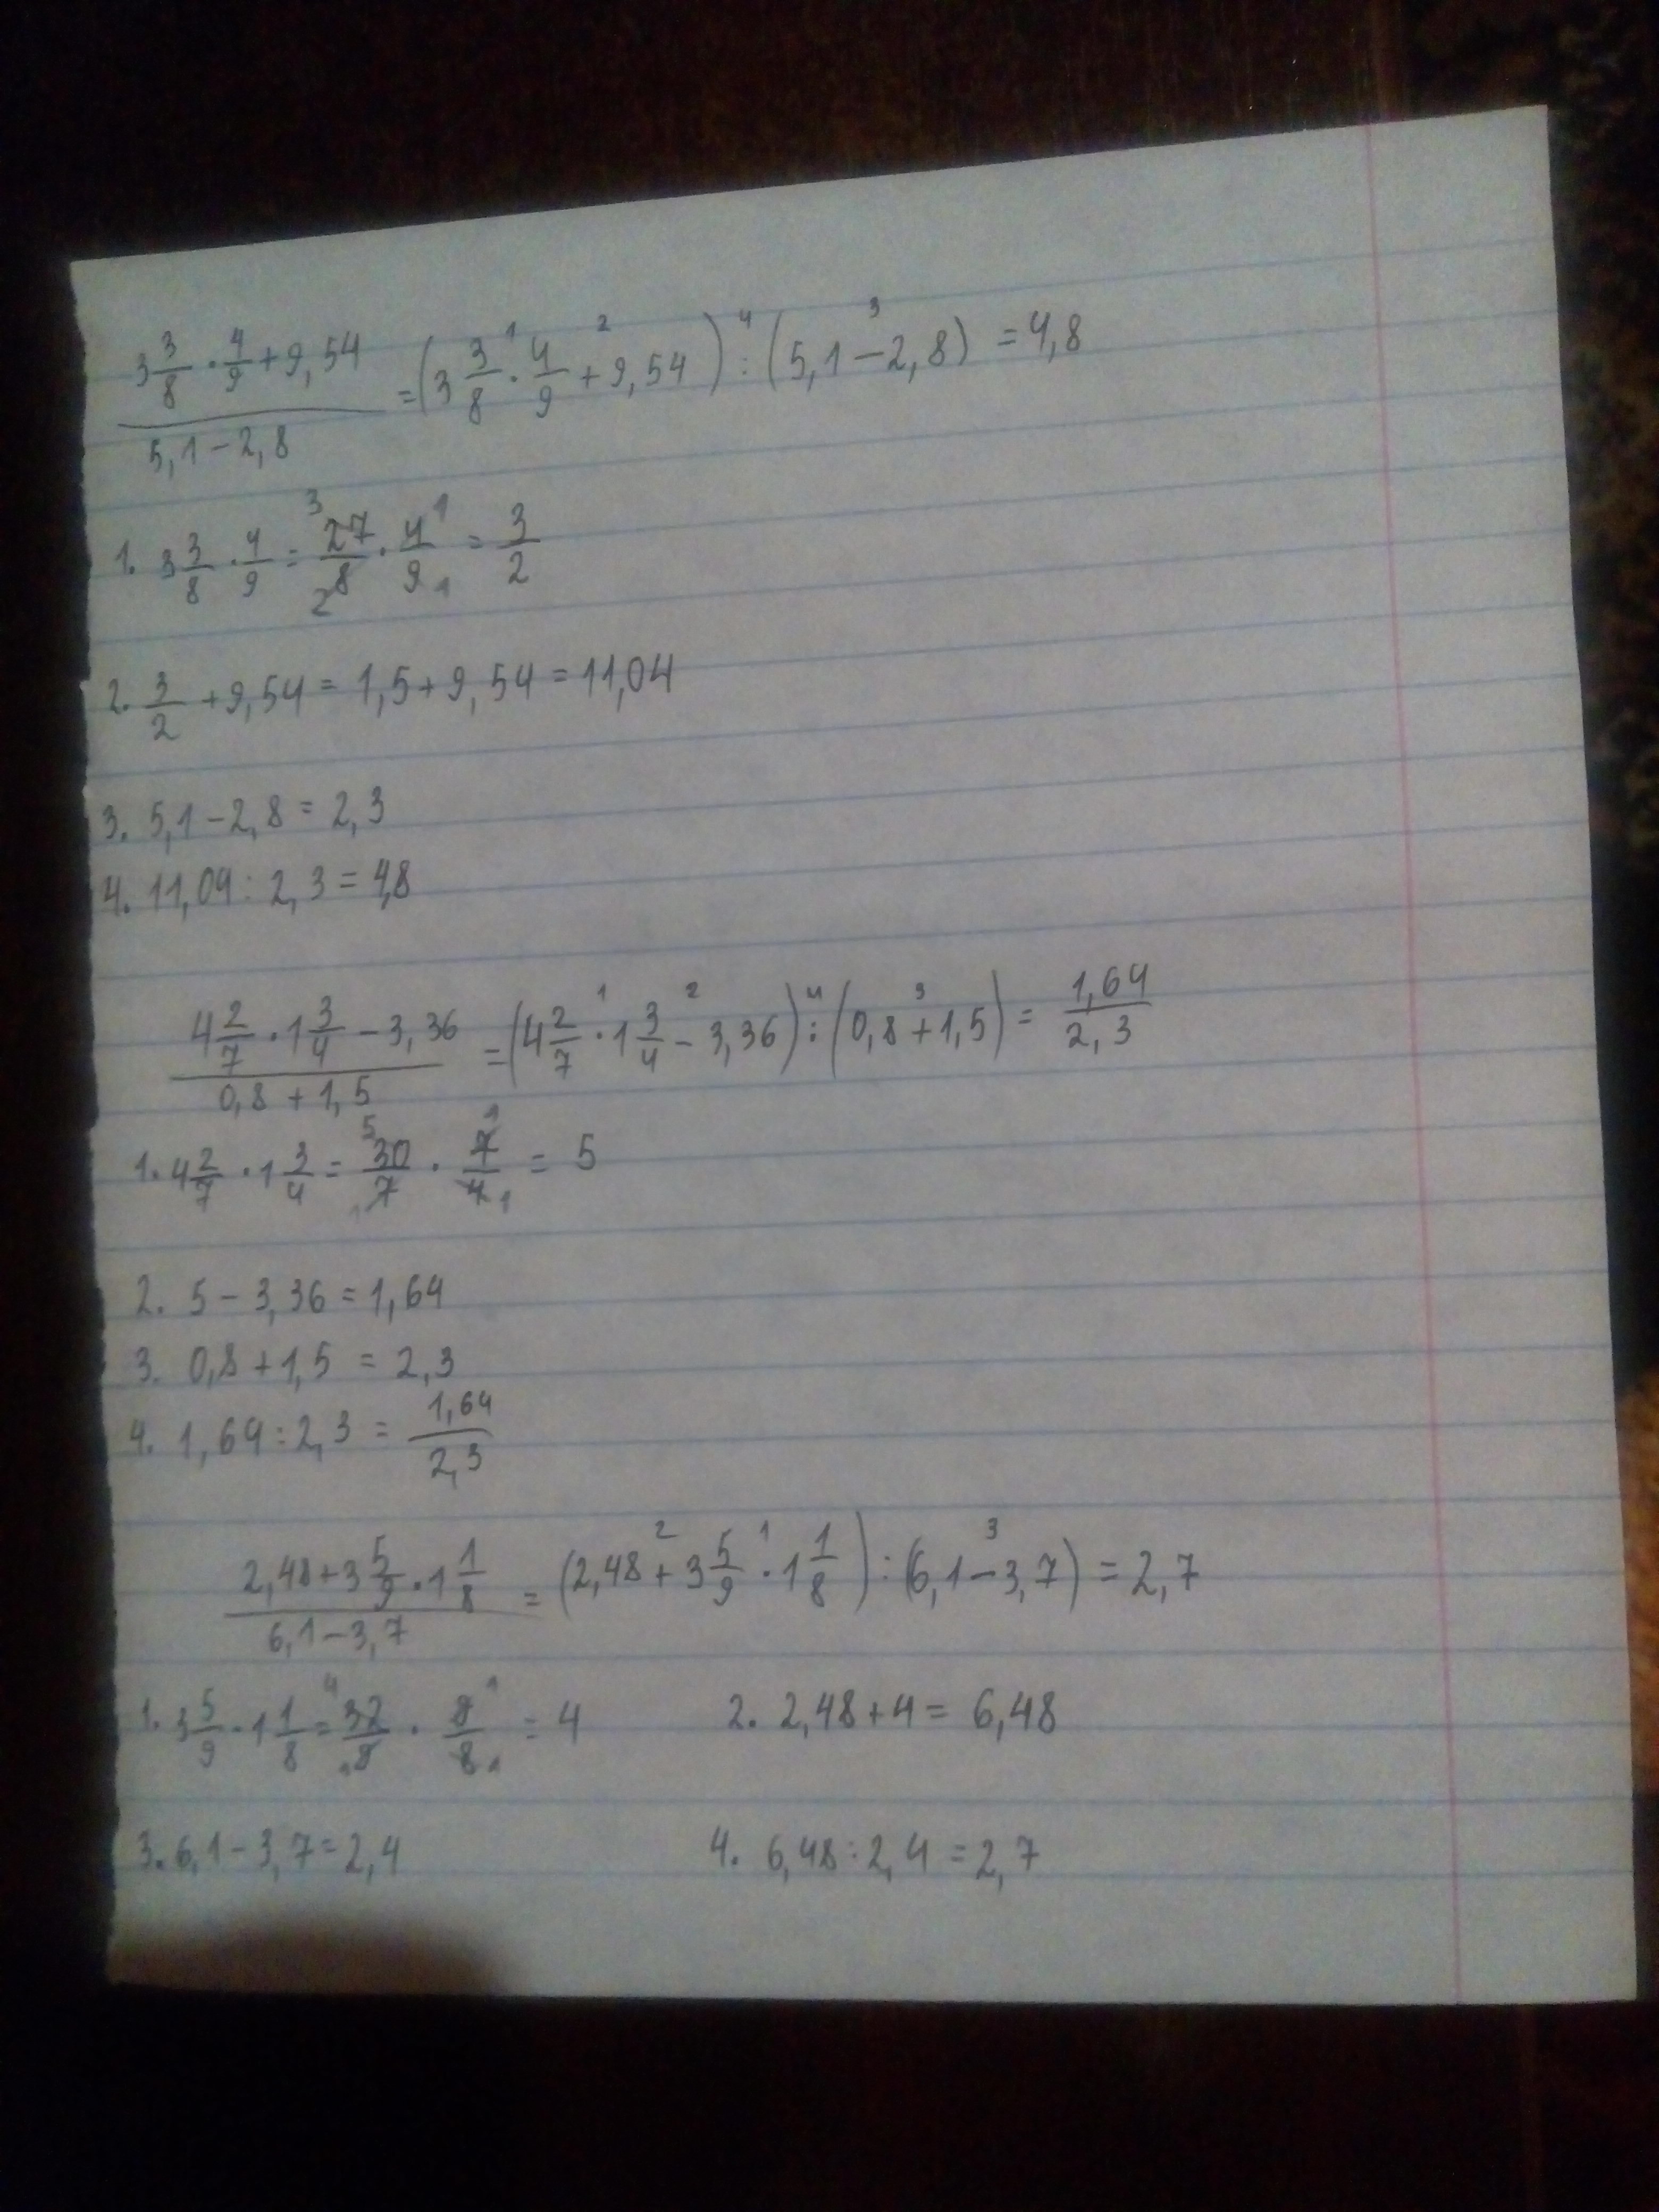 (3 3/8 · 4/9 + 9,54) / (5,1 − 2,8) = (3 3/8 ·¹ 4/9 +² 9,54) :⁴ (5,1 −³ 2,8) = 4,8
1. 3 3/8 · 4/9 = ³27/8₂ · 4¹/9₁ = 3/2
2. 3/2 + 9,54 = 1,5 + 9,54 = 11,04
3. 5,1 − 2,8 = 2,3
4. 11,04 : 2,3 = 4,8
(4 2/7 · 1 3/4 − 3,36) / (0,8 + 1,5) = (4 2/7 ·¹ 1 3/4 −² 3,36) :⁴ (0,8 +³ 1,5) = 1,64/2,3
1. 4 2/7 · 1 3/4 = ⁵30/7₁ · 7¹/4₁ = 5
2. 5 − 3,36 = 1,64
3. 0,8 + 1,5 = 2,3
4. 1,64 : 2,3 = 1,64/2,3
(2,48 + 3 5/9 · 1 1/8) / (6,1 − 3,7) = (2,48 +² 3 5/9 ·¹ 1 1/8) : (6,1 −³ 3,7) = 2,7
1. 3 5/9 · 1 1/8 = ⁴32/9₁ · 9¹/8₁ = 4 2. 2,48 + 4 = 6,48
3. 6,1 − 3,7 = 2,4 4. 6,48 : 2,4 = 2,7